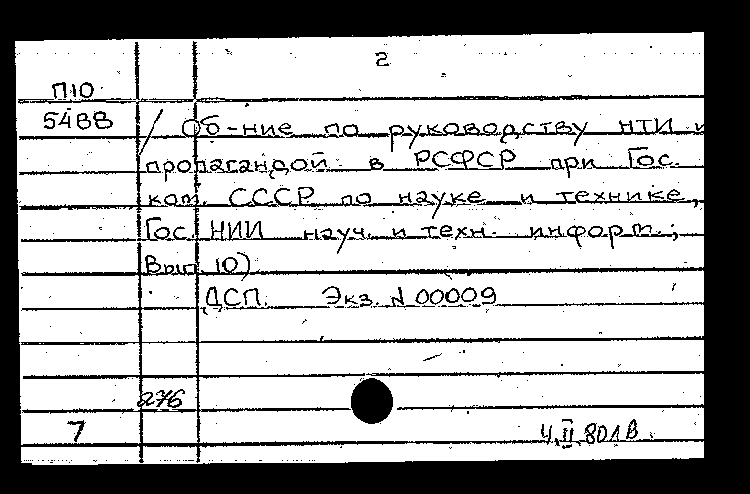 2
П10
54ВВ
/ Об-ние по руководству НТИ и
пропагандой в РСФСР при Гос.
ком. СССР по науке и технике,
Гос. НИИ науч. и техн. информ.;
Вып. 10)
ДСП. Экз. N 00009
276
7
4.II.801В